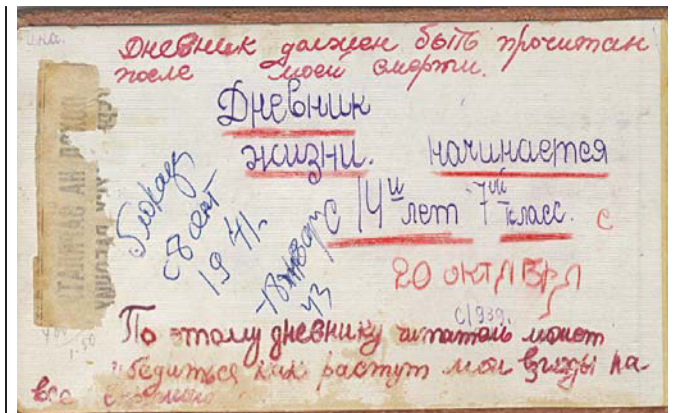 Дневник должен быть прочитан
после моей смерти.
Дневник
жизни. начинается
с 14и лет 7ий класс. с
20 октября
с/939.
Блокада
с 8 сент
19 41г.
18 январ
43
По этому дневнику читатель может
убедиться как растут мои взгляды на
все